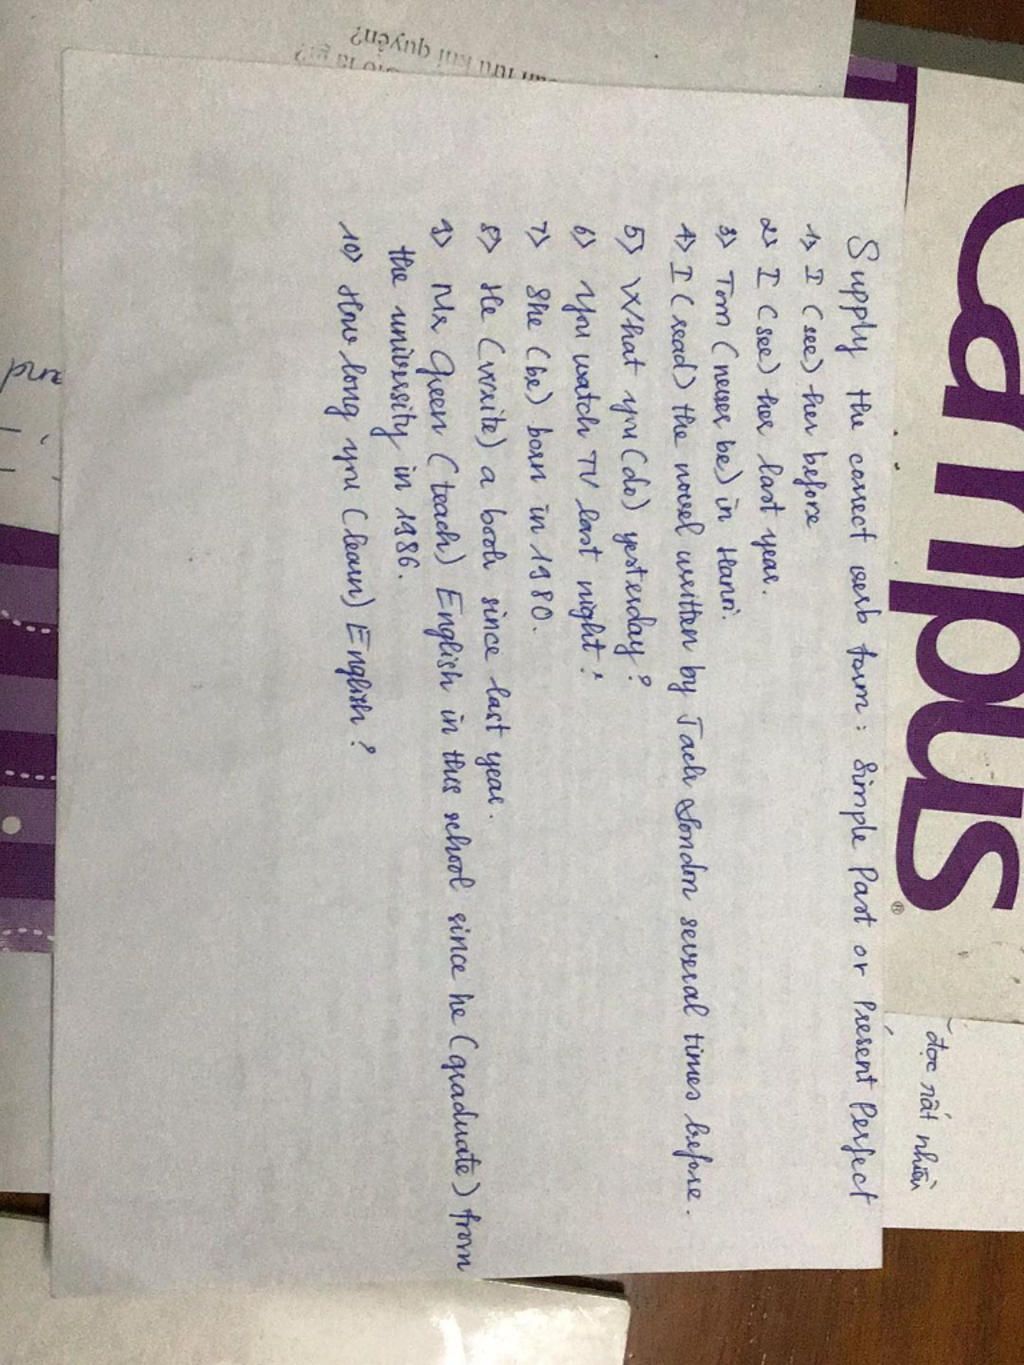 Supply the correct verb form: Simple Past or Present Perfect
1) I (see) her before
2) I (see) her last year.
3) Tom (never be) in Hanoi.
4) I (read) the novel written by Jack London several times before.
5) What you (do) yesterday?
6) You watch TV last night?
7) She (be) born in 1980.
8) He (write) a book since last year.
9) Mr Green (teach) English in this school since he (graduate) from
the university in 1986.
10) How long you (learn) English?
Campus®
đọc rất nhiều
khí quyển?
là gì?
and